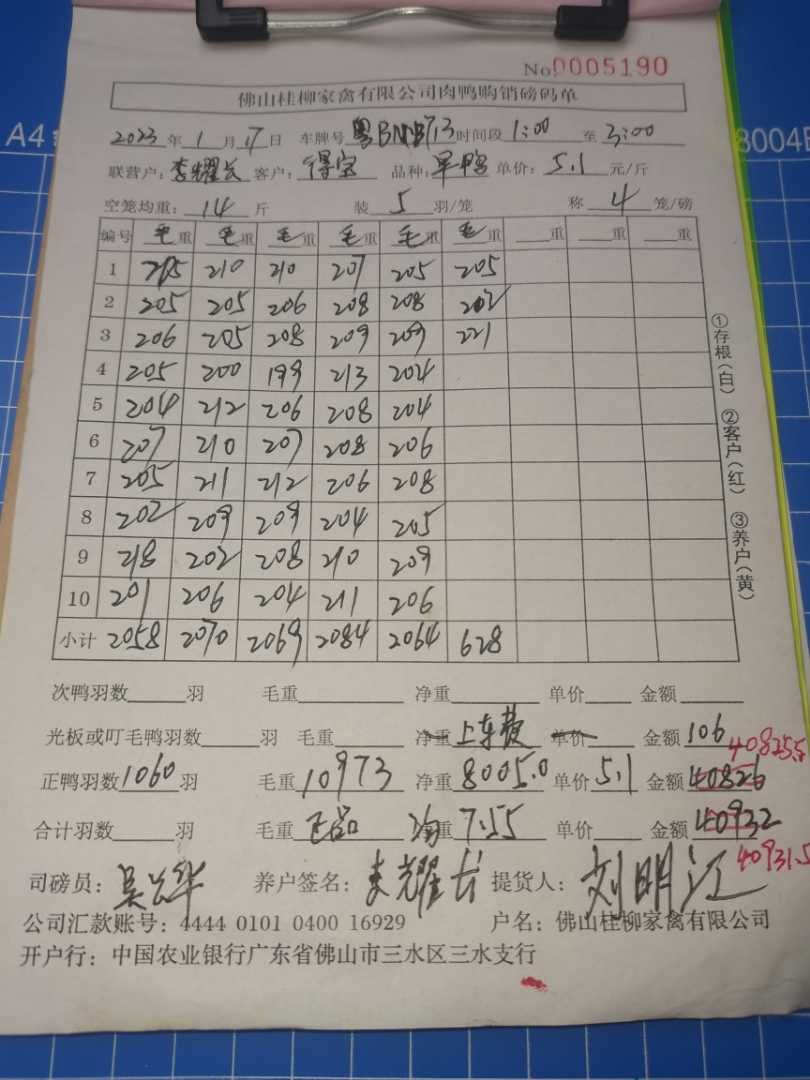 A4
8004
No.0005190
佛山桂柳家禽有限公司肉鸭购销磅码单
2023年1月17日 车牌号 粤BNB713 时间段 1:00 至 3:00
联营户:李耀长 客户:得宝 品种:早鸭 单价:5.1元/斤
空笼均重:14斤 装5羽/笼 称4笼/磅
编号 毛重 毛重 毛重 毛重 毛重 毛重 重 重 重
1 205 210 210 207 205 205
2 205 205 206 208 208 202
3 206 205 208 209 209 221
4 205 200 199 213 204
5 204 212 206 208 204
6 207 210 207 208 206
7 205 211 212 206 208
8 202 209 209 204 205
9 218 202 208 210 209
10 201 206 204 211 206
小计 2058 2070 2069 2084 2064 628
①存根(白) ②客户(红) ③养户(黄)
次鸭羽数 羽 毛重 净重 单价 金额
光板或叮毛鸭羽数 羽 毛重 净重 上车费 单价 金额 106
408255
正鸭羽数1060羽 毛重10973 净重8005.0 单价5.1 金额40826
合计羽数 羽 毛重 正品 净重 7.55 单价 金额 40932
40931.5
司磅员:吴 华 养户签名:李耀长 提货人:刘明江
公司汇款账号:4444 0101 0400 16929 户名:佛山桂柳家禽有限公司
开户行:中国农业银行广东省佛山市三水区三水支行